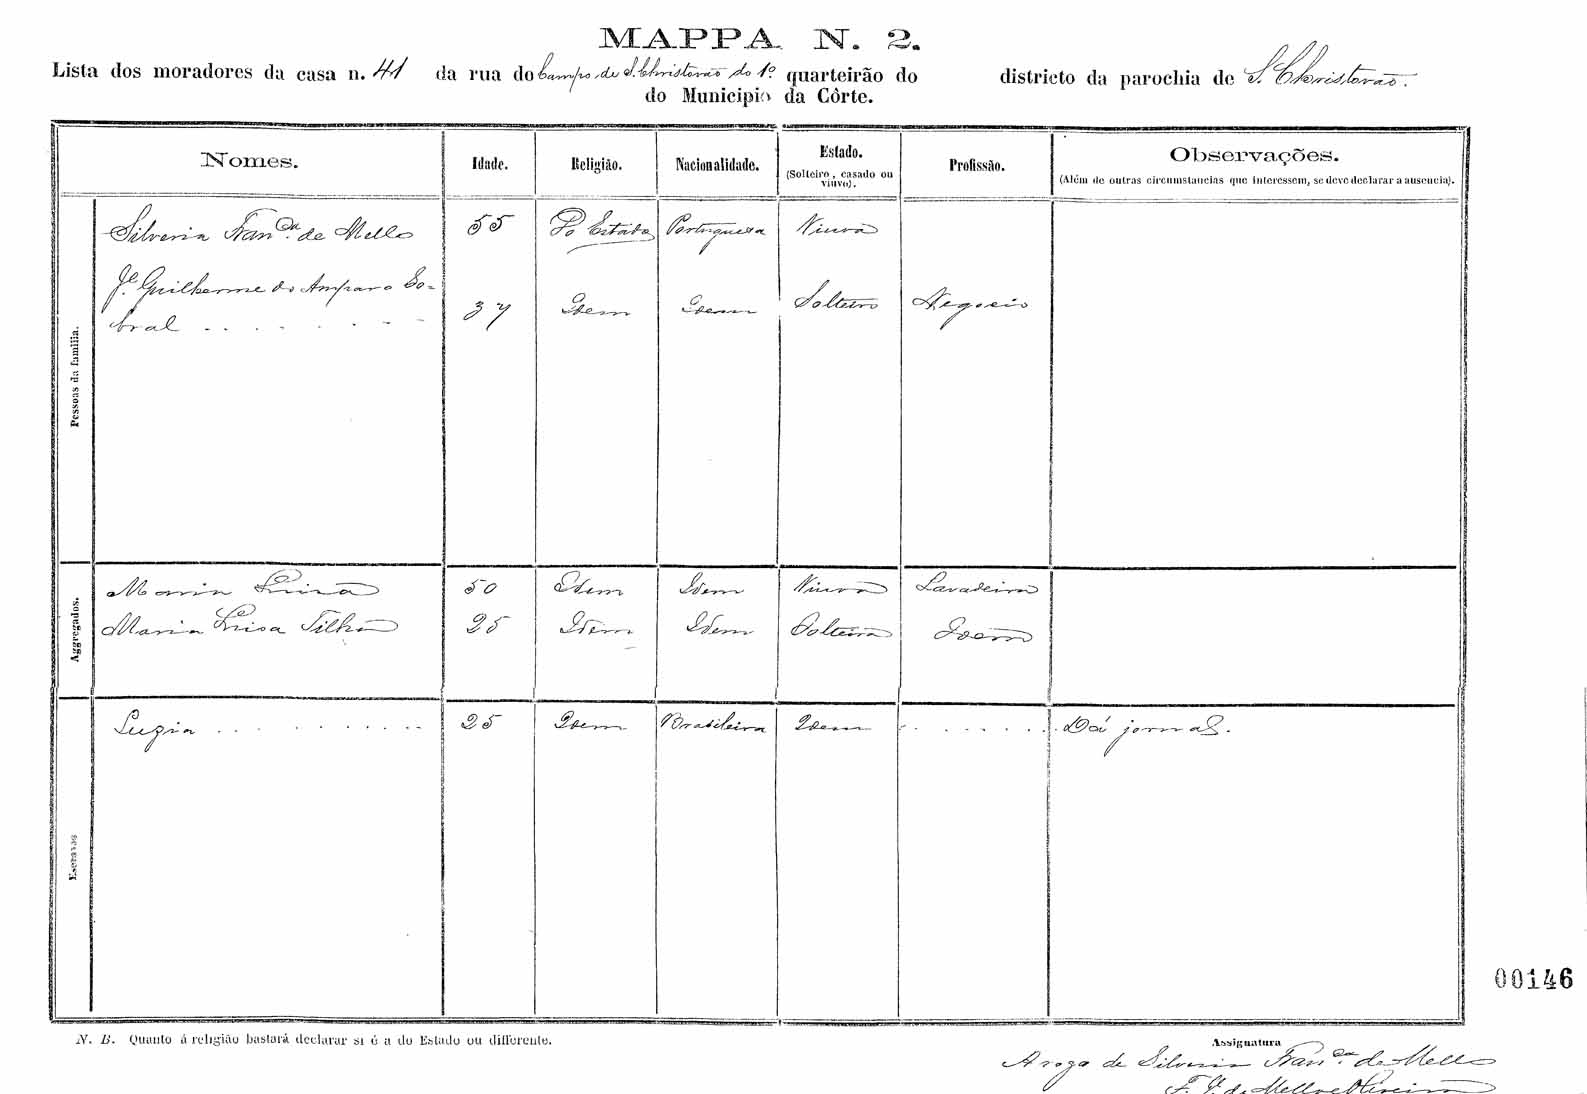 MAPPA N. 2.
Lista dos moradores da casa n. 41 da rua do Campo de S. Christovão do 1º quarteirão do districto da parochia de S. Christovão.
do Municipio da Côrte.
Nomes. Idade. Religião. Nacionalidade. Estado. Profissão. Observações.
(Solteiro, casado ou viuvo). (Além de outras circumstancias que interessem, se deve declarar a ausencia).
Pessoas da familia.
Silveria Fran.ca de Mello 55 Do Estado Portuguesa Viuva
Je. Guilherme do Amparo So-
bral . . . . . . . 37 Idem Idem Solteiro Negocio
Aggregados.
Maria Luisa 50 Idem Idem Viuva Lavadeira
Maria Luisa Filha 25 Idem Idem Solteira Idem
Escravos
Luzia . . . . . . . . . 25 Idem Brasileira Idem . . . . . . . Dá jornal.
00146
N. B. Quanto á religião bastará declarar si é a do Estado ou differente.
Assignatura
A rogo de Silveria Fran.ca de Mello
de Mello